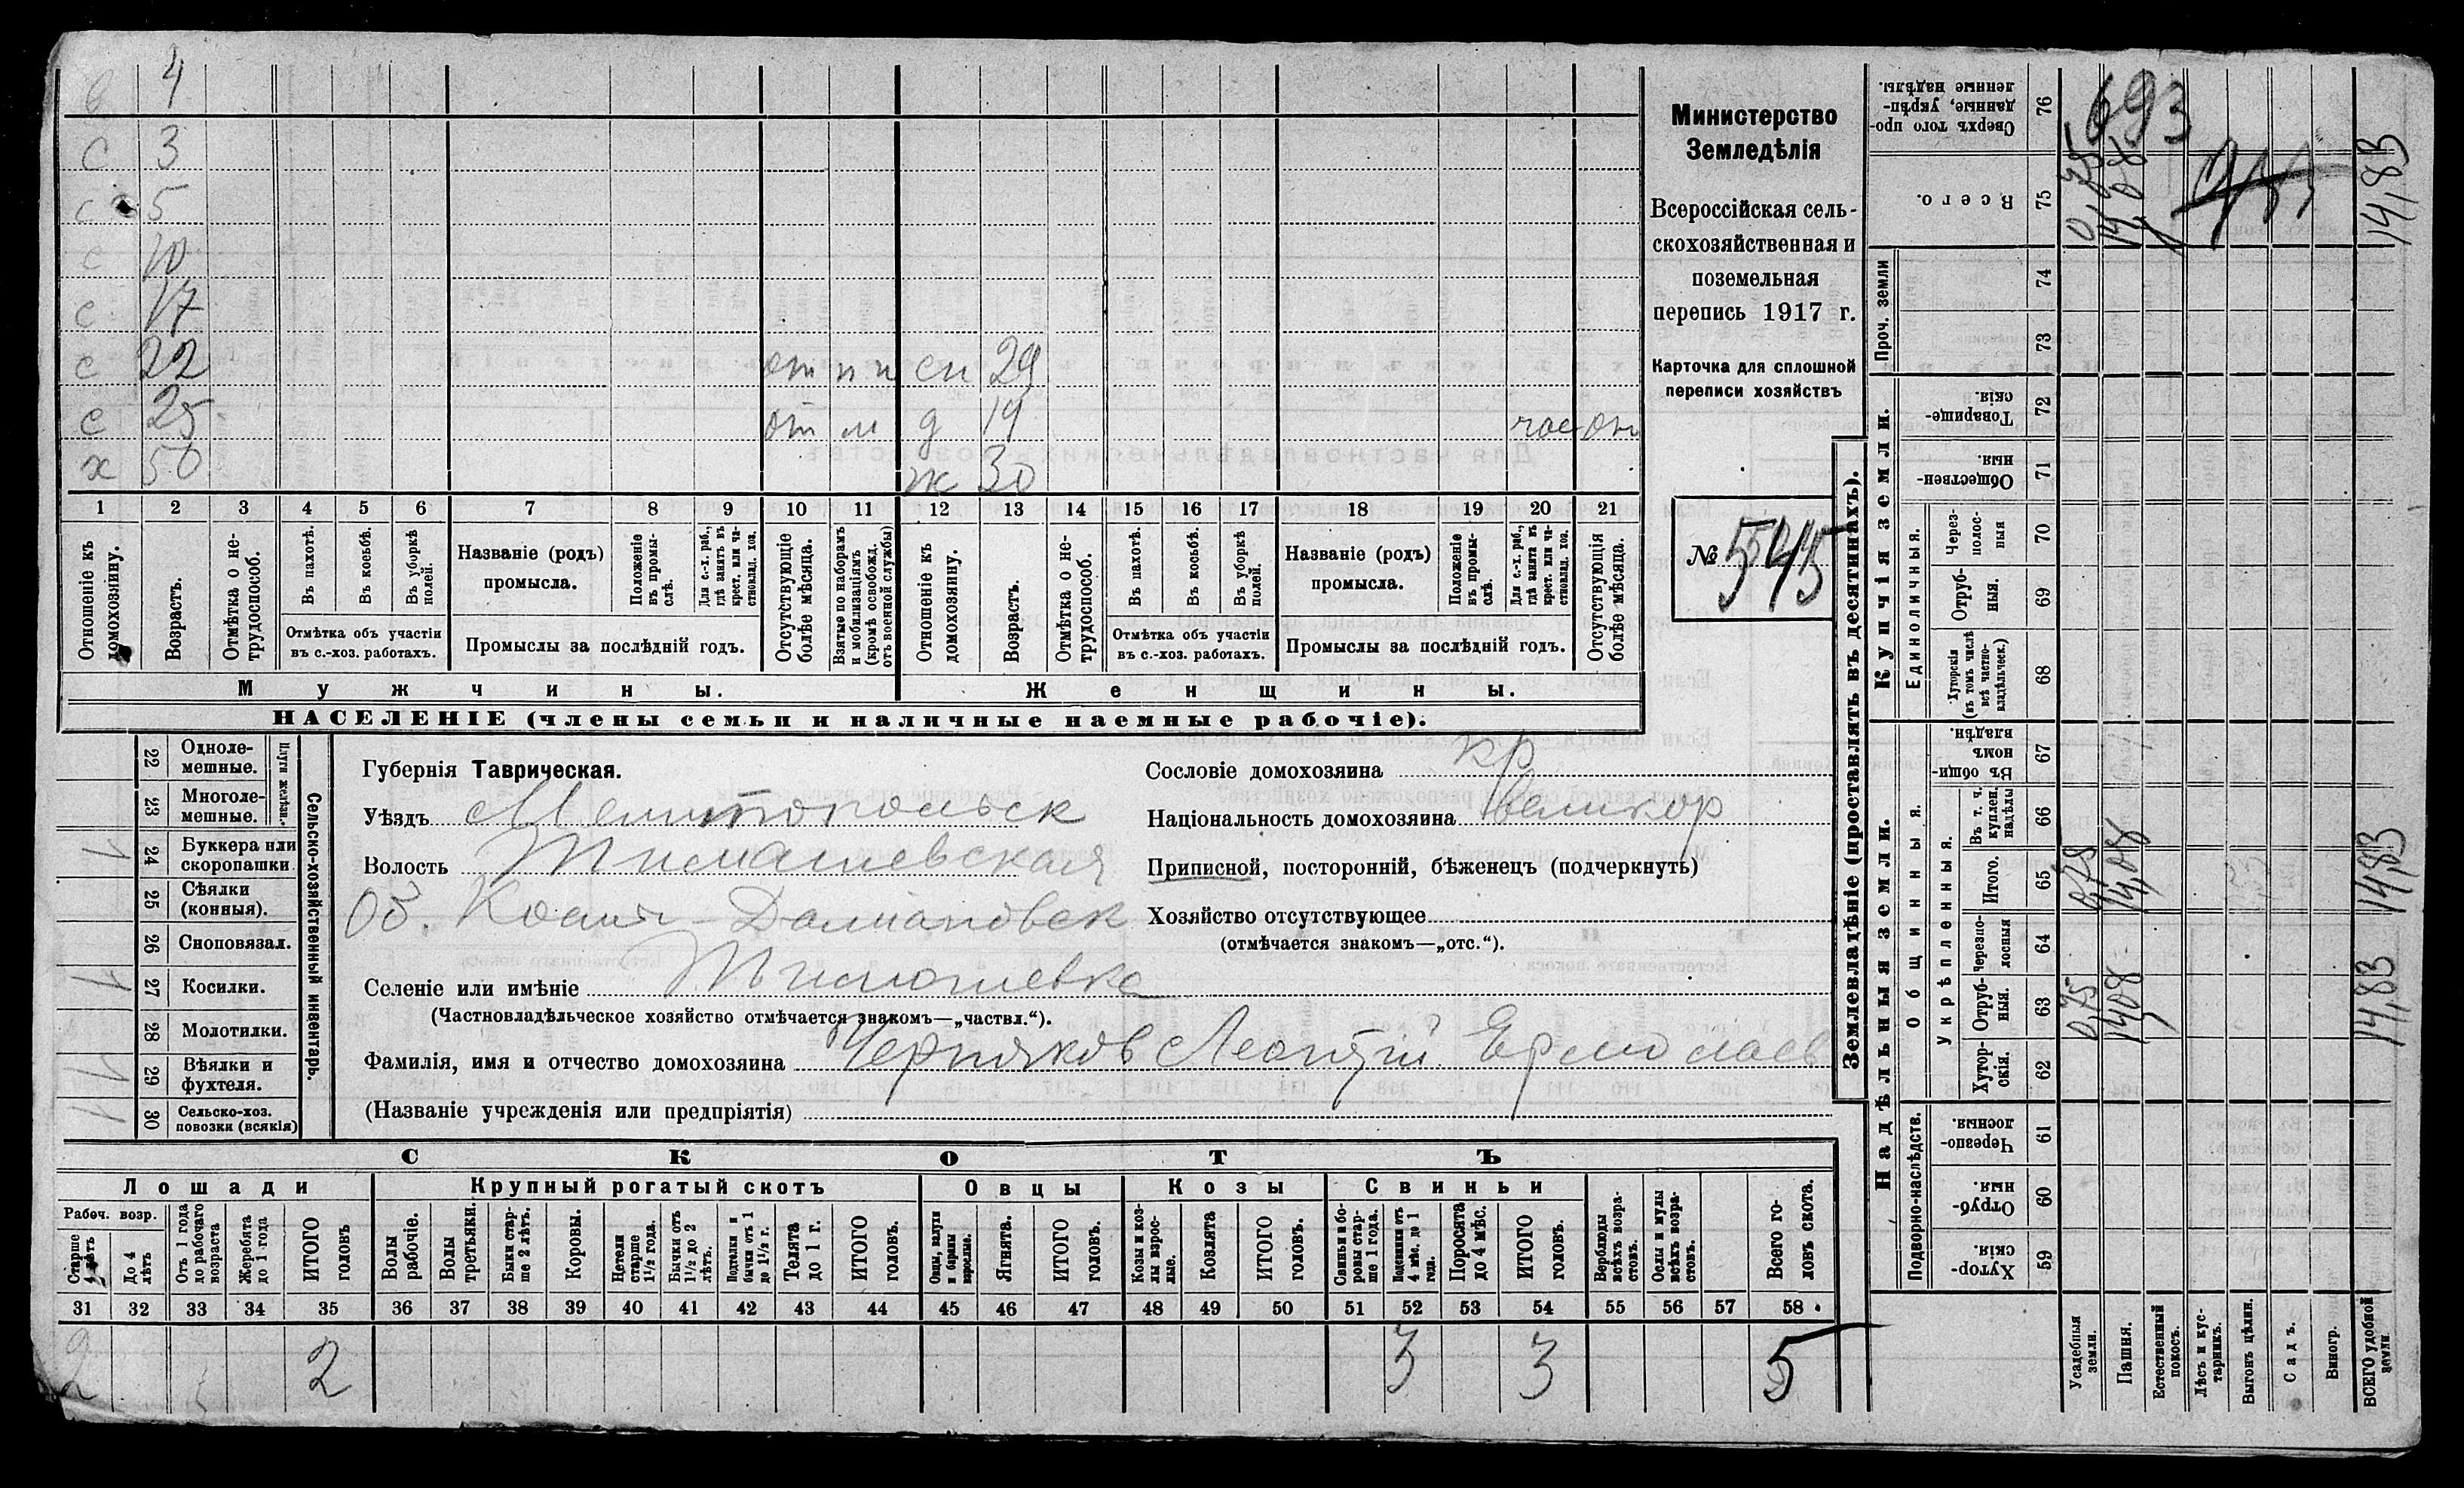 в 4
с 3
с 5
с 10
с 17
с 22 от сн 29
с 25 от д 19 от
х 50 ж 30
1 2 3 4 5 6 7 8 9 10 11 12 13 14 15 16 17 18 19 20 21
Отношеніе къ домохозяину.
Возрастъ.
Отмѣтка о не-трудоспособ.
Въ пахотѣ.
Въ косьбѣ.
Въ уборкѣ полей.
Отмѣтка объ участіи въ с.-хоз. работахъ.
Названіе (родъ) промысла.
Положеніе въ промы-слѣ.
Для с.-х. раб., гдѣ занятъ въ крест. или ча-стновлад. хоз.
Промыслы за послѣдній годъ.
Отсутствующіе болѣе мѣсяца.
Взятые по наборамъ и мобилизаціямъ (кромѣ освобожд. отъ военной службы)
Отношеніе къ домохозяину.
Возрастъ.
Отмѣтка о не-трудоспособ.
Въ пахотѣ.
Въ косьбѣ.
Въ уборкѣ полей.
Отмѣтка объ участіи въ с.-хоз. работахъ.
Названіе (родъ) промысла.
Положеніе въ промы-слѣ.
Для с.-х. раб., гдѣ занята въ крест. или ча-стновлад. хоз.
Промыслы за послѣдній годъ.
Отсутствующія болѣе мѣсяца.
Мужчины.
Женщины.
НАСЕЛЕНІЕ (члены семьи и наличные наемные рабочіе).
Министерство
Земледѣлія
Всероссійская сель-
скохозяйственная и
поземельная
перепись 1917 г.
Карточка для сплошной
переписи хозяйствъ
№ 545
22 Одноле-мешные.
23 Многоле-мешные.
Плуги желѣзн.
24 Буккера или скоропашки.
25 Сѣялки (конныя).
26 Сноповязал.
27 Косилки.
28 Молотилки.
29 Вѣялки и фухтеля.
30 Сельско-хоз. повозки (всякія)
Сельско-хозяйственный инвентарь.
Губернія Таврическая.
Уѣздъ Мелитопольск
Волость Тимашевская
Об. Косьм-Даміановск
Селеніе или имѣніе Тимошевка
(Частновладѣльческое хозяйство отмѣчается знакомъ—„частвл.“).
Фамилія, имя и отчество домохозяина Черняков Леонтій Ермолаев
(Названіе учрежденія или предпріятія)
Сословіе домохозяина кр
Національность домохозяина Великор
Приписной, посторонній, бѣженецъ (подчеркнуть)
Хозяйство отсутствующее
(отмѣчается знакомъ—„отс.“).
СКОТЪ
Лошади
Крупный рогатый скотъ
Овцы
Козы
Свиньи
Рабоч. возр.
Старше 4 лѣтъ
До 4 лѣтъ
Отъ 1 года до рабочаго возраста
Жеребята до 1 года
ИТОГО головъ
Волы рабочіе.
Волы третьяки.
Быки стар-ше 2 лѣтъ.
Коровы.
Нетели старше 1½ года.
Бычки отъ 1½ до 2 лѣтъ.
Подтелки и бычки отъ 1 до 1½ г.
Телята до 1 г.
ИТОГО головъ.
Овцы, валухи и бараны взрослые.
Ягнята.
ИТОГО головъ.
Козы и коз-лы взрос-лые.
Козлята
ИТОГО головъ.
Свиньи и бо-ровы стар-ше 1 года.
Подсвинки отъ 4 мѣс. до 1 года.
Поросята до 4 мѣс.
ИТОГО головъ.
Верблюды всѣхъ возра-стовъ.
Ослы и мулы всѣхъ возра-стовъ.
Всего го-ловъ скота.
31 32 33 34 35 36 37 38 39 40 41 42 43 44 45 46 47 48 49 50 51 52 53 54 55 56 57 58
2 2 3 3 5
Землевладѣніе (проставлять въ десятинахъ).
Надѣльныя земли.
Купчія земли.
Проч. земли
Сверхъ того про-данные, укрѣп-ленные надѣлы. 76
Всего. 75
74
73
Товарище-скія. 72
Обществен-ныя. 71
Единоличныя.
Через-полос-ныя 70
Отруб-ныя. 69
Хуторскія (въ томъ числѣ всѣ частно-владѣльческ.) 68
Общинныя.
Въ общин-номъ владѣн. 67
Укрѣпленныя.
Въ т. ч. куплен. надѣлы 66
Итого. 65
Черезпо-лосныя 64
Отруб-ныя. 63
Хутор-скія. 62
Подворно-наслѣдств.
Черезпо-лосныя. 61
Отруб-ныя. 60
Хутор-скія. 59
Усадебныя земли.
Пашня.
Естественный покосъ.
Лѣсъ и кус-тарникъ.
Выгонъ цѣлин.
Садъ.
Виногр.
ВСЕГО удобной земли
693
0,75 14,08 14,83
0,75 14,08 14,83
0,75 14,08 14,83